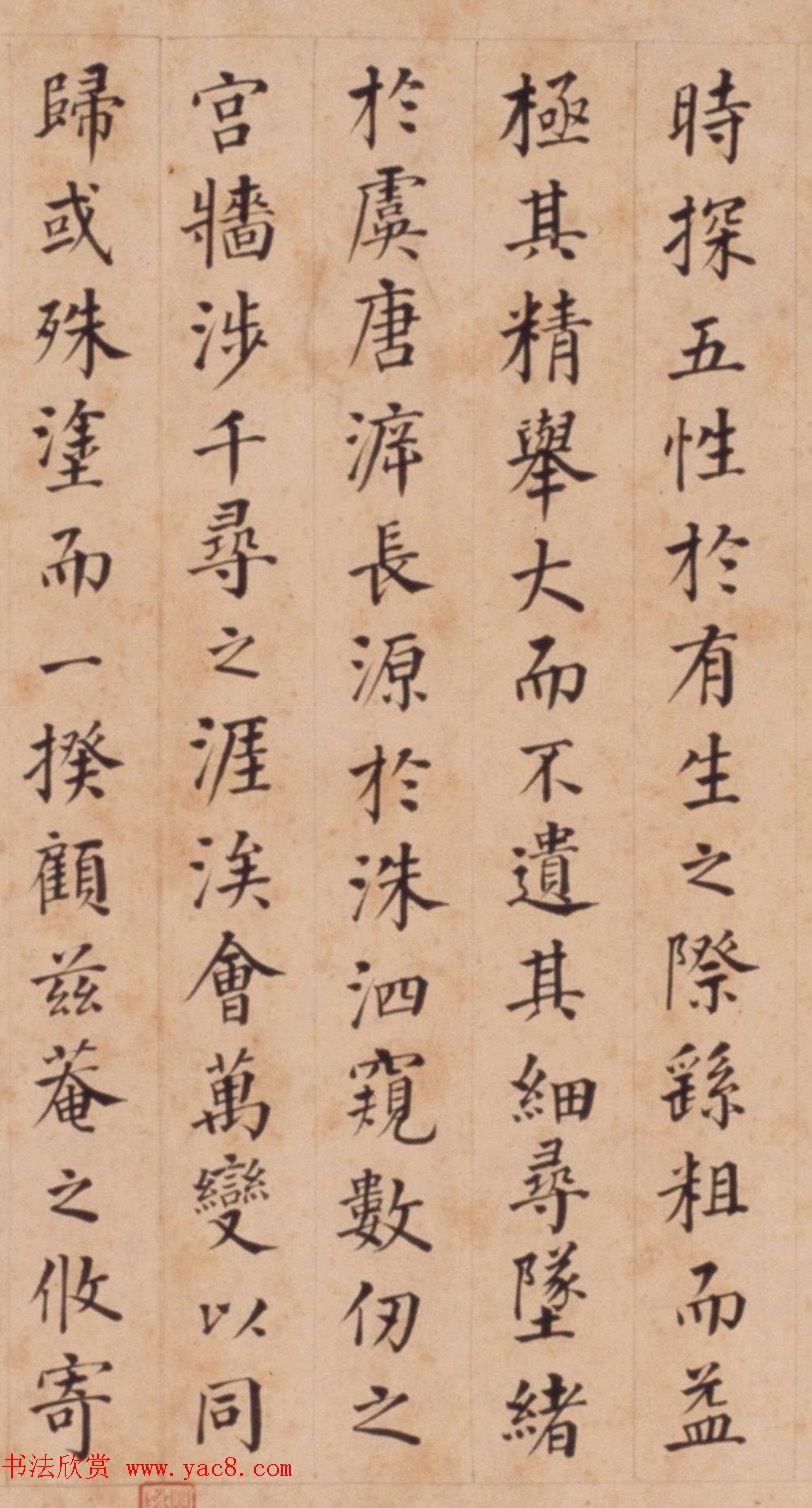 時探五性於有生之際繇粗而益
極其精舉大而不遺其細尋墜緒
於虞唐泝長源於洙泗窺數仞之
宮牆涉千尋之涯涘會萬變以同
歸或殊塗而一揆顧兹菴之攸寄
书法欣赏 www.yac8.com